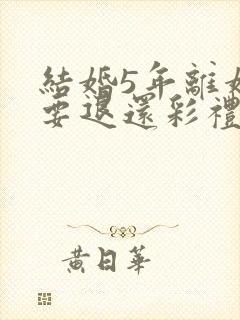 結婚5年離
要退還彩禮
黃日華